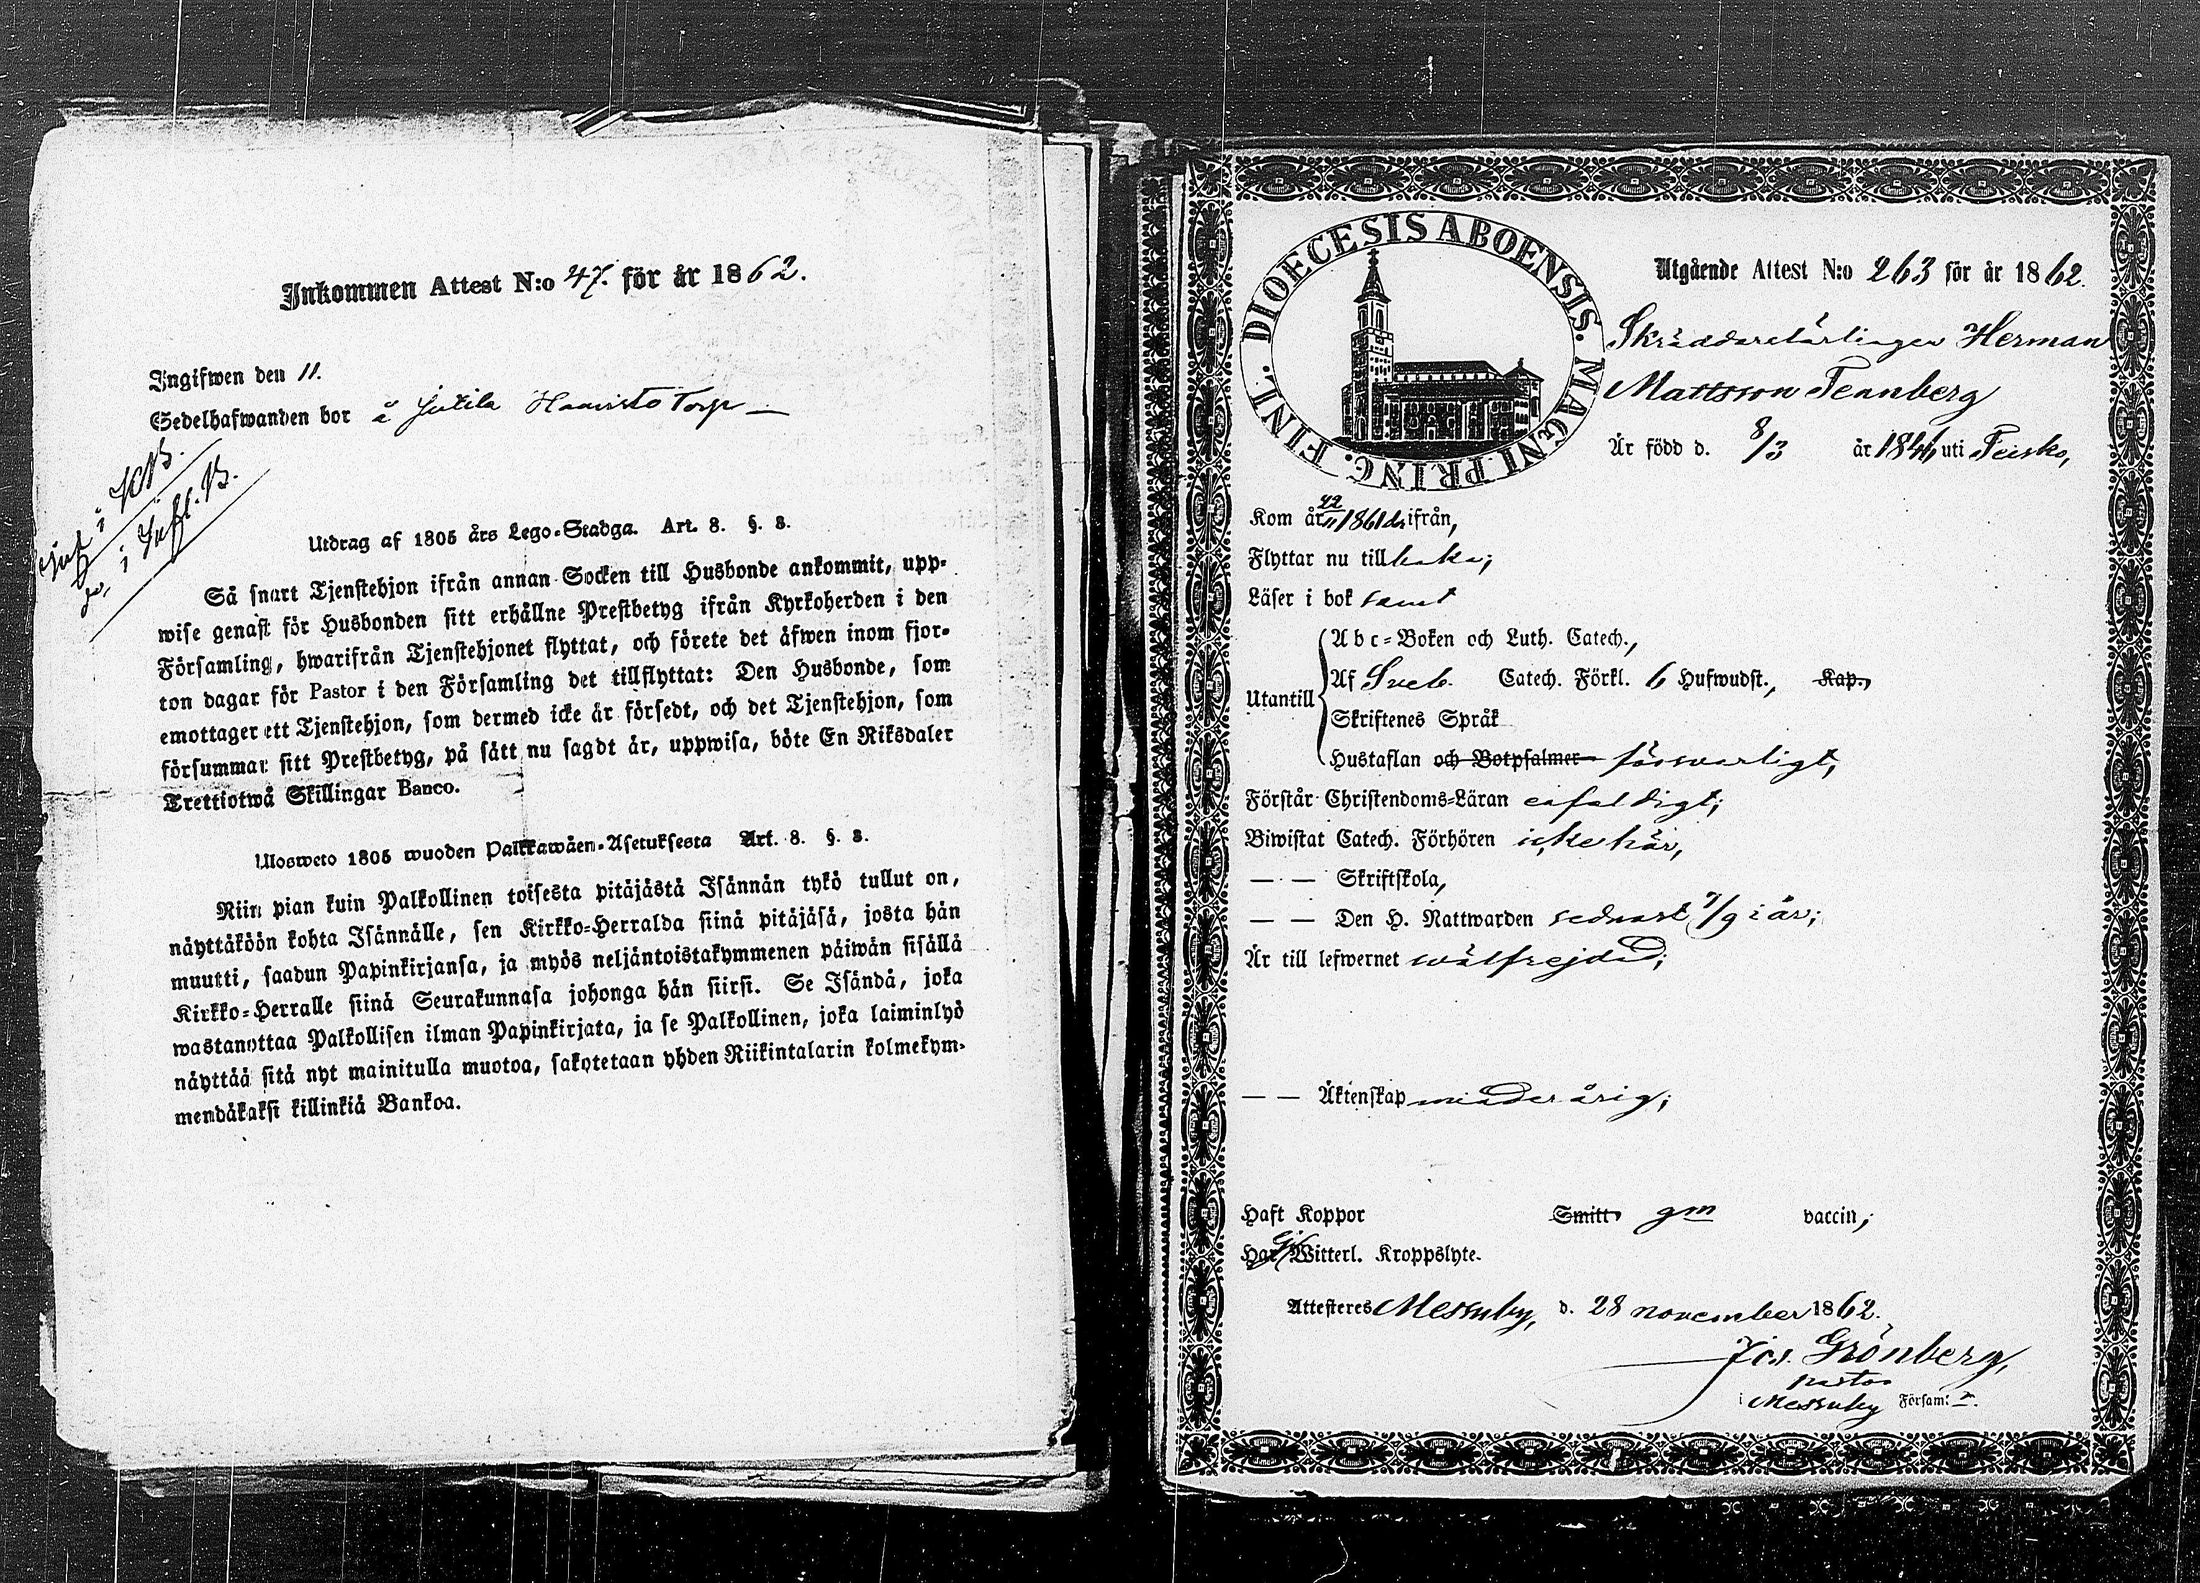 Inkommen Attest N:o 47. för år 1862.
Ingifwen den 11.
Sedelhafwanden bor å Jutila Haavisto Torp —
i KB.
i Infl. B.
Utdrag af 1805 års Lego-Stadga. Art. 8. §. 8.
Så snart Tjenstehjon ifrån annan Socken till Husbonde ankommit, upp-
wise genast för Husbonden sitt erhållne Prestbetyg ifrån Kyrkoherden i den
Församling, hwarifrån Tjenstehjonet flyttat, och förete det äfwen inom fjor-
ton dagar för Pastor i den Församling det tillflyttat: Den Husbonde, som
emottager ett Tjenstehjon, som dermed icke är försedt, och det Tjenstehjon, som
försummar sitt Prestbetyg, på sätt nu sagdt är, uppwisa, böte En Riksdaler
Trettiotwå Skillingar Banco.
Ulosweto 1805 wuoden Palkkawäen-Asetuksesta Art. 8. §. 8.
Niin pian kuin Palkollinen toisesta pitäjästä Isännän tykö tullut on,
näyttäköön kohta Isännälle, sen Kirkko-Herralda siinä pitäjäsä, josta hän
muutti, saadun Papinkirjansa, ja myös neljäntoistakymmenen päiwän sisällä
Kirkko-Herralle siinä Seurakunnasa johonga hän siirsi. Se Isändä, joka
wastanottaa Palkollisen ilman Papinkirjata, ja se Palkollinen, joka laiminlyö
näyttää sitä nyt mainitulla muotoa, sakotetaan yhden Riikintalarin kolmekym-
mendäkaksi killinkiä Bankoa.
DIOECESIS ABOENSIS. MAGNI PRINC. FINL.
Utgående Attest N:o 263 för år 1862.
Skräddarelärlingen Herman
Mattsson Tennberg
Är född d. 8/3 år 1846 uti Teisko,
Kom år 1861 därifrån,
Flyttar nu tillbaka;
Läser i bok samt
Utantill
Abc-Boken och Luth. Catech.,
Af Sveb. Catech. Förkl. 6 Hufwudst., Kap.,
Skriftenes Språk
Hustaflan och Botpsalmer försvarligt,
Förstår Christendoms-Läran enfaldigt;
Biwistat Catech. Förhören icke här,
— — Skriftskola,
— — Den H. Nattwarden sednast 7/9 i år;
Är till lefwernet wälfrejdad;
— — Äktenskap minderårig;
Haft Koppor Smitt gm vaccin;
Har ej Witterl. Kroppslyte.
Attesteres Messuby, d. 28 november 1862.
Jos. Grönberg,
pastor
i Messuby Församl.